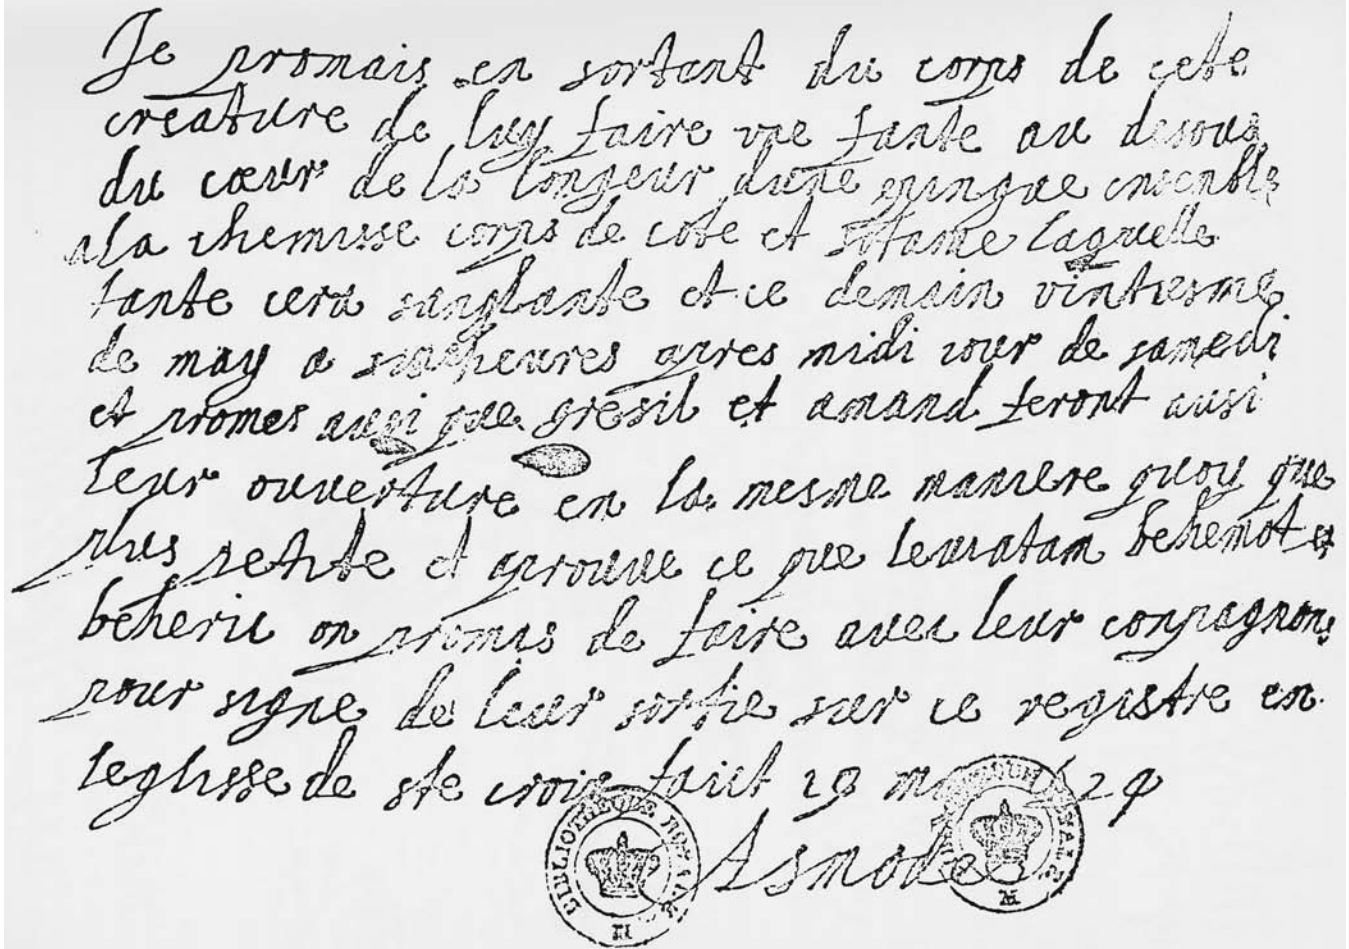 Je promais en sortant du corps de cete
creature de luy faire vne fante au desous
du cœur de la longeur dune pingue ensenble
a la chemisse corps de cote et sotane laquelle
fante cera sanglante et ce demain vintiesme
de may a sinc heures apres midi iour de samedi
et promes ausi que gresil et amand feront ausi
leur ouuerture en la mesme maniere quoy que
plus petite et aprouue ce que leuiatam behemot et
beherit on promis de faire auec leur conpagnons
pour signe de leur sortie sur ce registre en
leglisse de ste croix faict 19 may 1629
Asmodee
BIBLIOTHEQUE